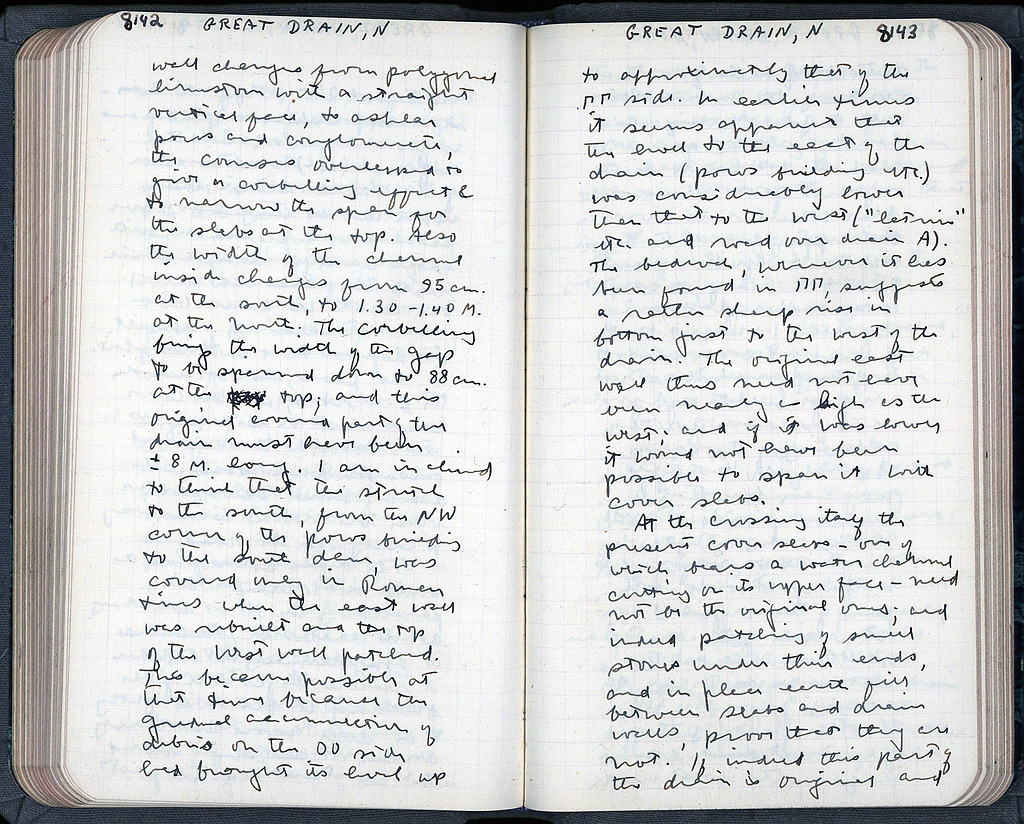 8142 GREAT DRAIN, N
wall changes from polygonal
limestone with a straight
vertical face, to ashlar
poros and conglomerate,
the courses overlapped to
give a corbelling effect &
to narrow the span for
the slabs at the top. Also
the width of the channel
inside changes from 95 cm.
at the south, to 1.30 - 1.40 M.
at the north. The corbelling
brings the width of the gap
to be spanned down to 88 cm.
at the top; and this
original covered part of the
drain must have been
± 8 M. long. I am inclined
to think that the stretch
to the south, from the NW
corner of the poros building
to the south, was
covered only in Roman
times when the east wall
was rebuilt and the top
of the west wall patched.
This became possible at
that time because the
gradual accumulation of
debris on the OO side
had brought its level up
GREAT DRAIN, N 8143
to approximately that of the
ΠΓ side. In earlier times
it seems apparent that
the level to the east of the
drain (poros building etc.)
was considerably lower
than that to the west ("
etc. and road over drain A).
The bedrock, wherever it has
been found in ΠΠ, suggests
a rather sharp rise in
bottom just to the west of the
drain. The original east
wall thus need not have
been nearly as high as the
west; and if it was lower
it would not have been
possible to span it with
cover slabs.
At the crossing itself the
present cover slabs - one of
which bears a water channel
cutting on its upper face - need
not be the original ones; and
indeed patching of small
stones under their ends,
and in places earth fill
between slabs and drain
walls, prove that they are
not. If indeed this part of
the drain is original and